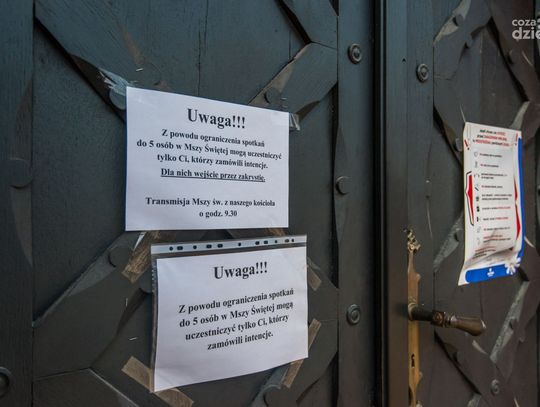 coza
dzie
Uwaga!!!
Z powodu ograniczenia spotkań
do 5 osób w Mszy Świętej mogą uczestniczyć
tylko Ci, którzy zamówili intencje.
Dla nich wejście przez zakrystię.
Transmisja Mszy św. z naszego kościoła
o godz. 9.30
Uwaga!!!
Z powodu ograniczenia spotkań
do 5 osób w Mszy Świętej mogą
uczestniczyć tylko Ci, którzy
zamówili intencje.